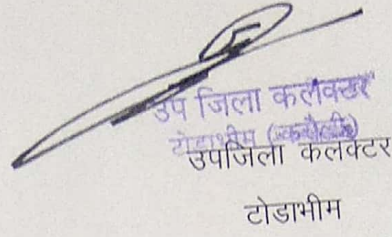 उप जिला कलक्टर
टोडाभीम (करौली)
उपजिला कलक्टर
टोडाभीम